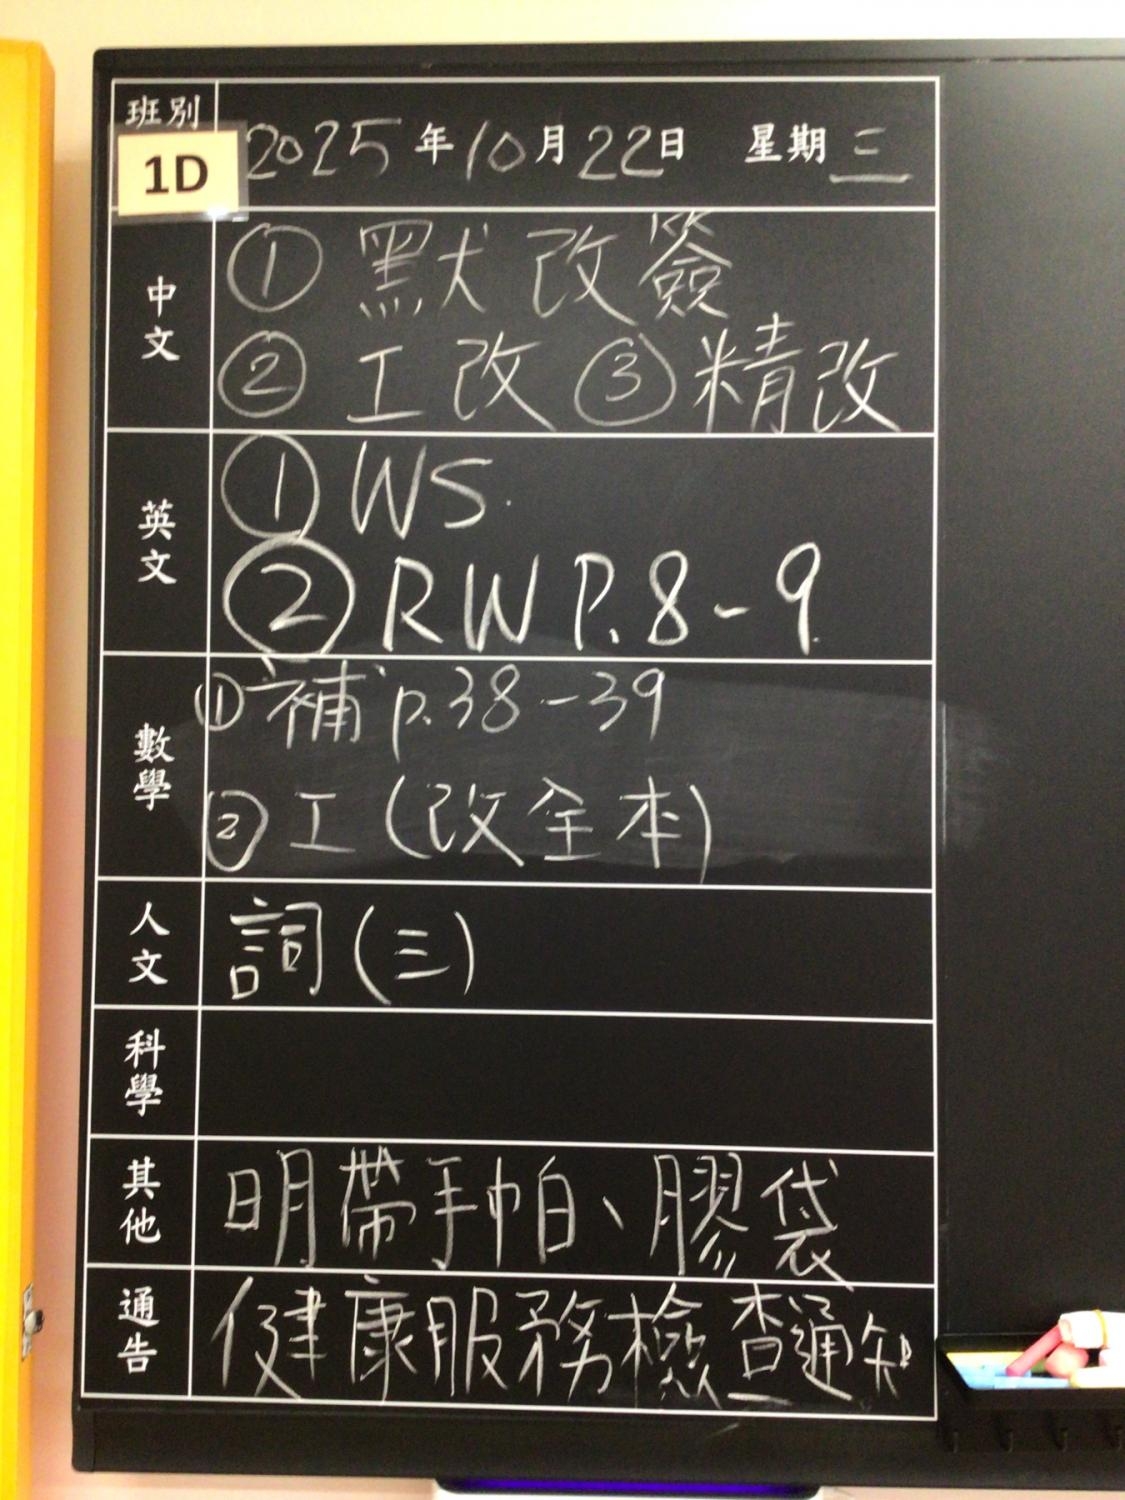 班別
1D
2025年10月22日 星期三
中文
① 默改簽
② 工改 ③ 精改
英文
① WS.
② RW P.8-9
數學
① 補 p.38-39
② 工(改全本)
人文
詞(三)
科學
其他
明帶手帕、膠袋
通告
健康服務檢查通知